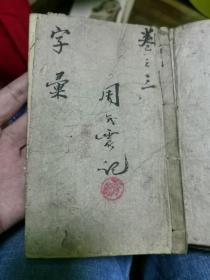 卷之三
周氏云記
字彙